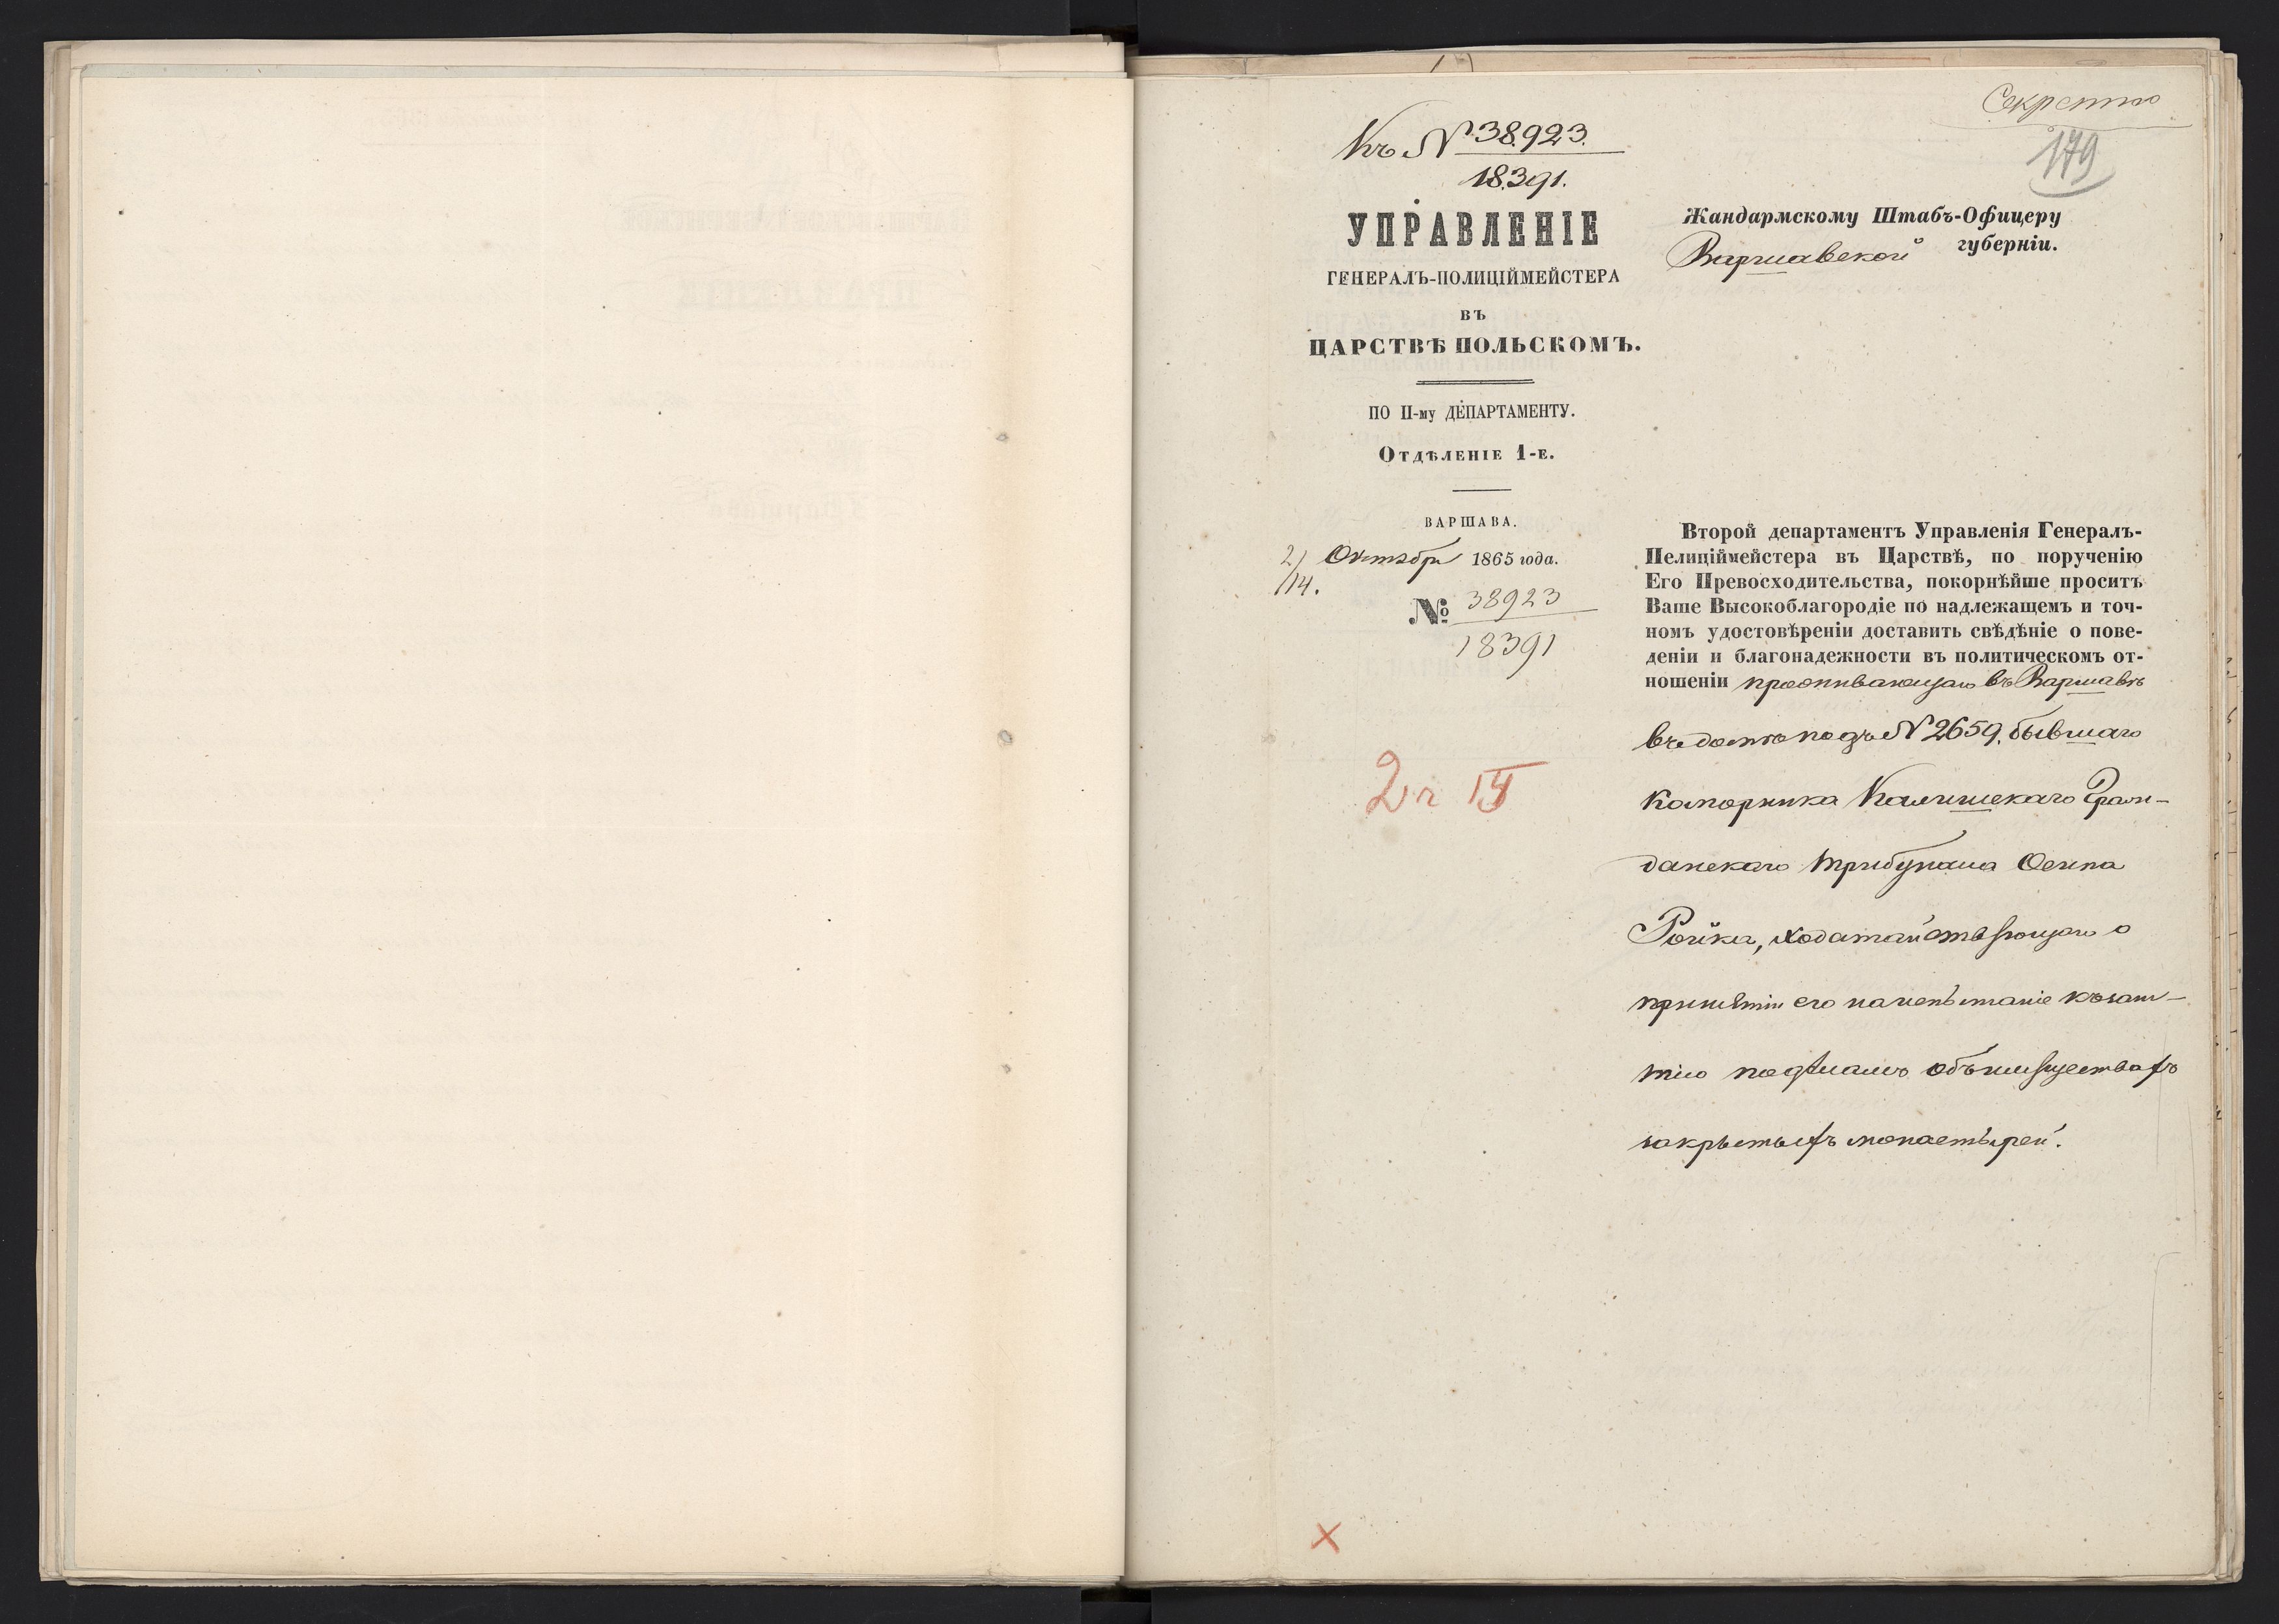 Секретно
179
Къ № 38923.
18391.
УПРАВЛЕНІЕ
ГЕНЕРАЛЪ-ПОЛИЦІЙМЕЙСТЕРА
ВЪ
ЦАРСТВѢ ПОЛЬСКОМЪ.
ПО II-му ДЕПАРТАМЕНТУ.
Отдѣленіе 1-е.
ВАРШАВА.
2/14. Октября 1865 года.
№ 38923
18391
Жандармскому Штабъ-Офицеру
Варшавской губерніи.
Второй департаментъ Управленія Генералъ-
Пелиціймейстера въ Царствѣ, по порученію
Его Превосходительства, покорнѣйше проситъ
Ваше Высокоблагородіе по надлежащемъ и точ-
номъ удостовѣреніи доставить свѣдѣніе о пове-
деніи и благонадежности въ политическомъ от-
ношеніи проживающаго въ Варшавѣ
въ домѣ подъ № 2659, бывшаго
коморника Калишскаго Граж-
данскаго Трибунала Осипа
Ройка, ходатайствующаго о
принятіи его на испытаніе къ заня-
тію по дѣламъ объ имуществахъ
закрытыхъ монастырей.